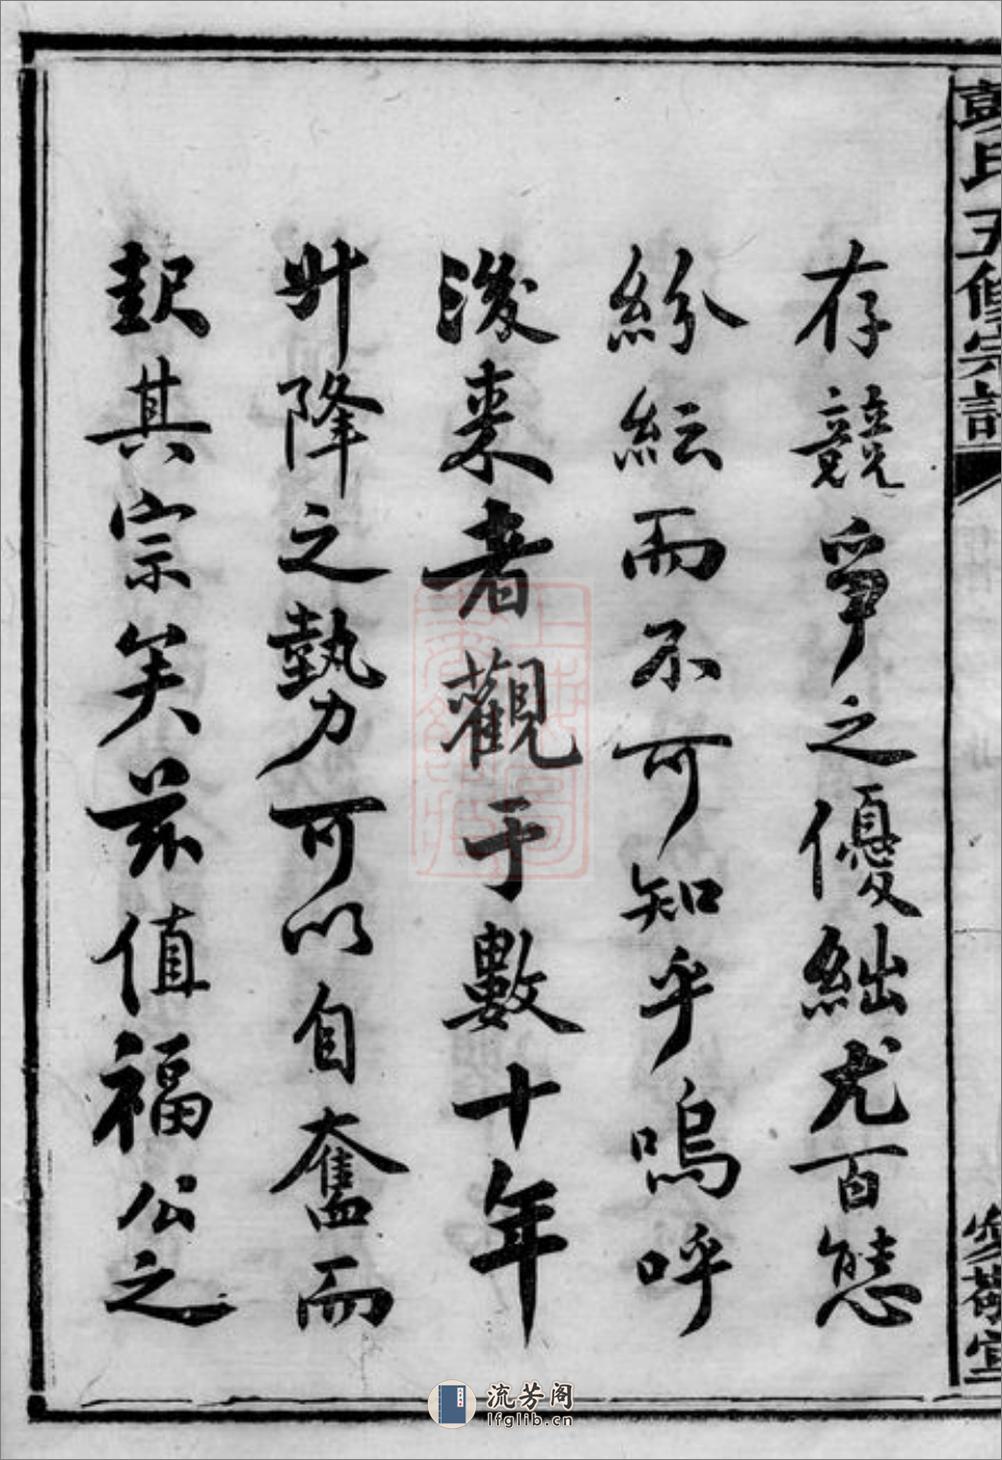 彭氏五修宗譜
存競爭之優絀尤百態
紛紜而不可知乎嗚呼
後来者觀于數十年
升降之勢可以自奮而
報其宗矣茲值福公之
流芳阁
lfglib.cn